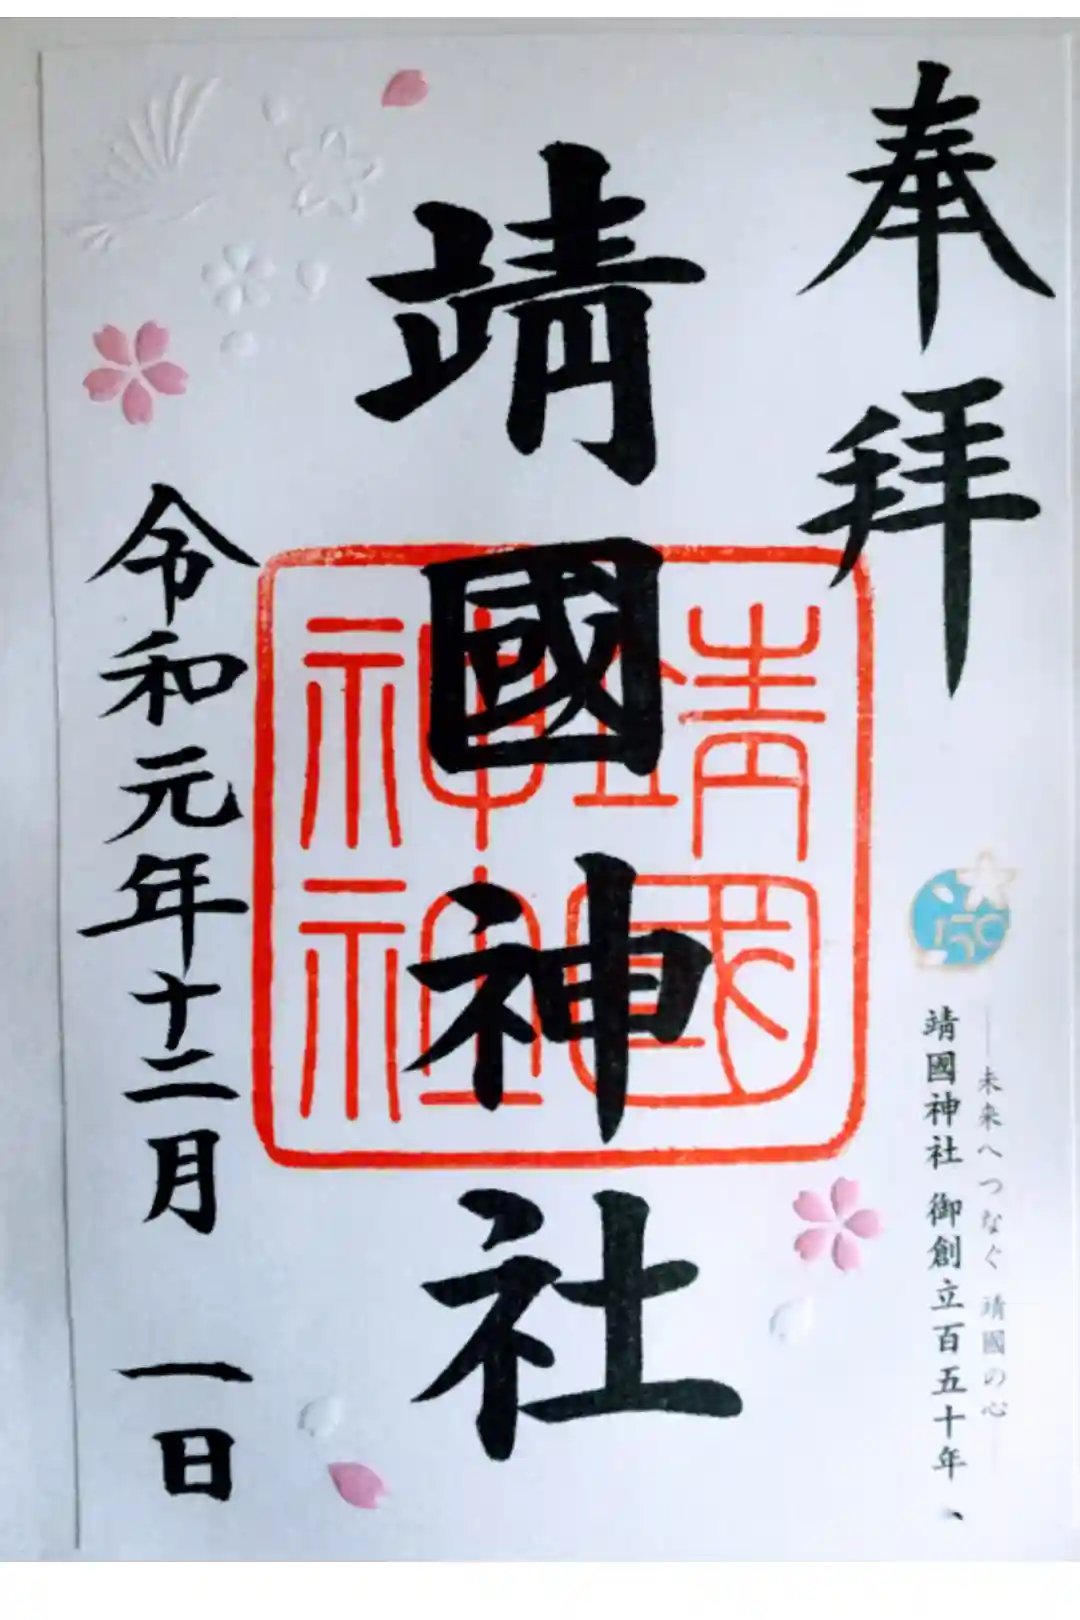 奉拜
150
―未来へつなぐ 靖國の心―
靖國神社 御創立百五十年
靖國神社
靖國神社
令和元年十二月 一日